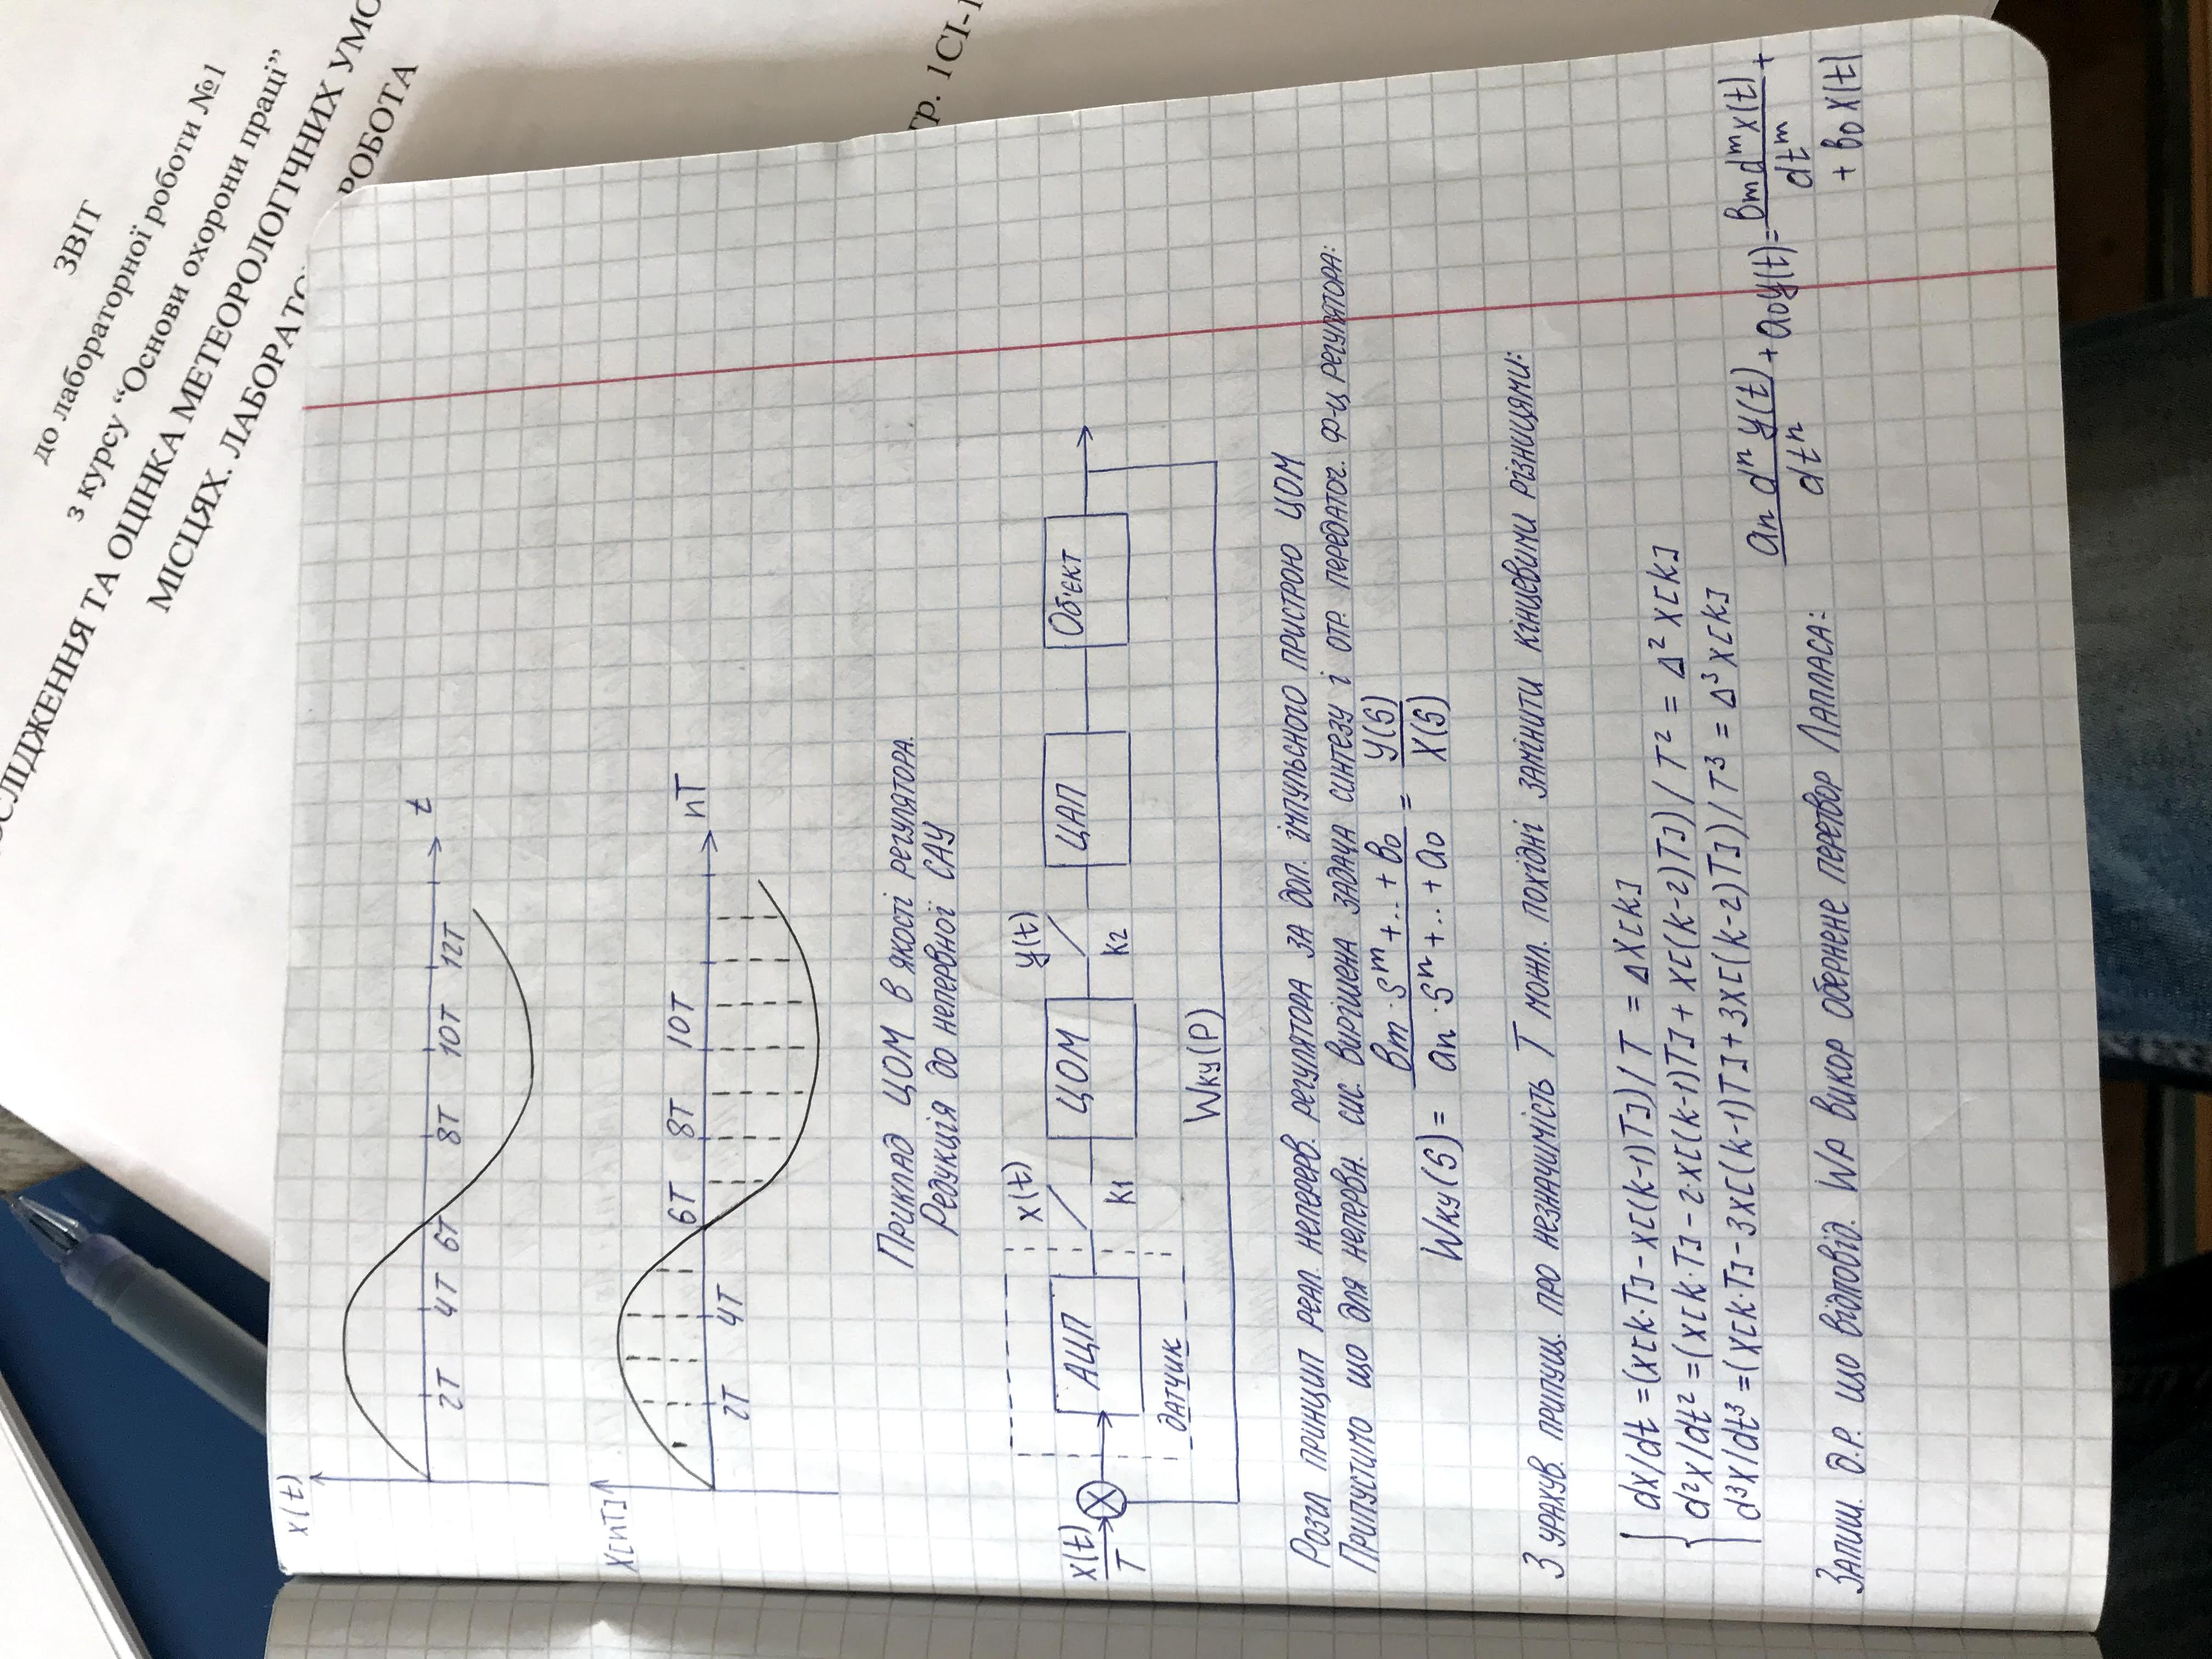 ЗВІТ
до лабораторної роботи №1
з курсу “Основи охорони праці”
СЛІДЖЕННЯ ТА ОЦІНКА МЕТЕОРОЛОГІЧНИХ УМО
МІСЦЯХ. ЛАБОРАТО РОБОТА
гр. 1СІ-1
x(t)
t
2T 4T 6T 8T 10T 12T
X[nT]
6T 8T 10T nT
2T 4T
Приклад ЦОМ в якості регулятора.
Редукція до непервної САУ
x(t) y(t)
x(t) АЦП ЦОМ ЦАП Об'єкт
T K1 K2
датчик
Wку(P)
Розгл принцип реал. неперерв. регулятора за доп. імпульсного пристрою ЦОМ
Припустимо що для непервн. сис. вирішена задача синтезу і отр. передаточ. ф-ц регулятора:
Wку(S) = (вm·S^m+..+в0)/(an·S^n+..+a0) = Y(S)/X(S)
З урахув. припущ. про незначимість T можл. похідні замінити кінцевими різницями:
dx/dt =(x[k·T]-x[(k-1)T])/T = ΔX[k]
d²x/dt² =(x[k·T]-2·x[(k-1)T]+x[(k-2)T])/T² = Δ²X[k]
d³x/dt³ =(x[k·T]-3x[(k-1)T]+3x[(k-2)T])/T³ = Δ³X[k]
Запиш. д.р. що відповід. Wр викор обернене перетвор Лапласа: an d^n y(t)/dt^n + a0y(t)= вm d^m x(t)/dt^m +
+ в0 x(t)